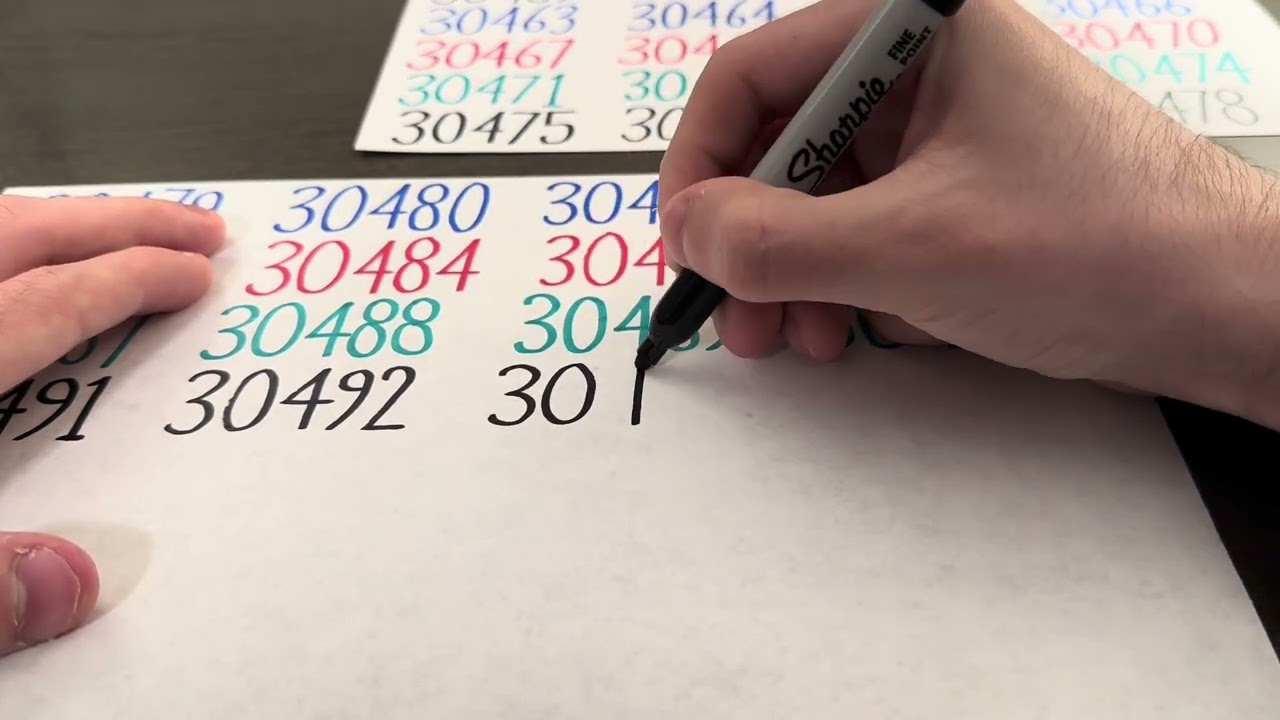 30463 30464 30466
30467 304 30470
30471 30 30474
30475 30 478
30480 304
30484 304
30488 304
491 30492 30
Sharpie
FINE
POINT